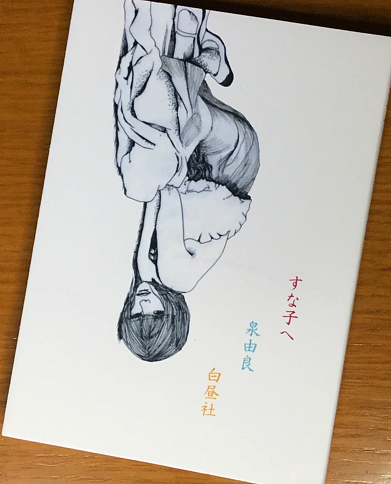 すな子へ
泉由良
白昼社